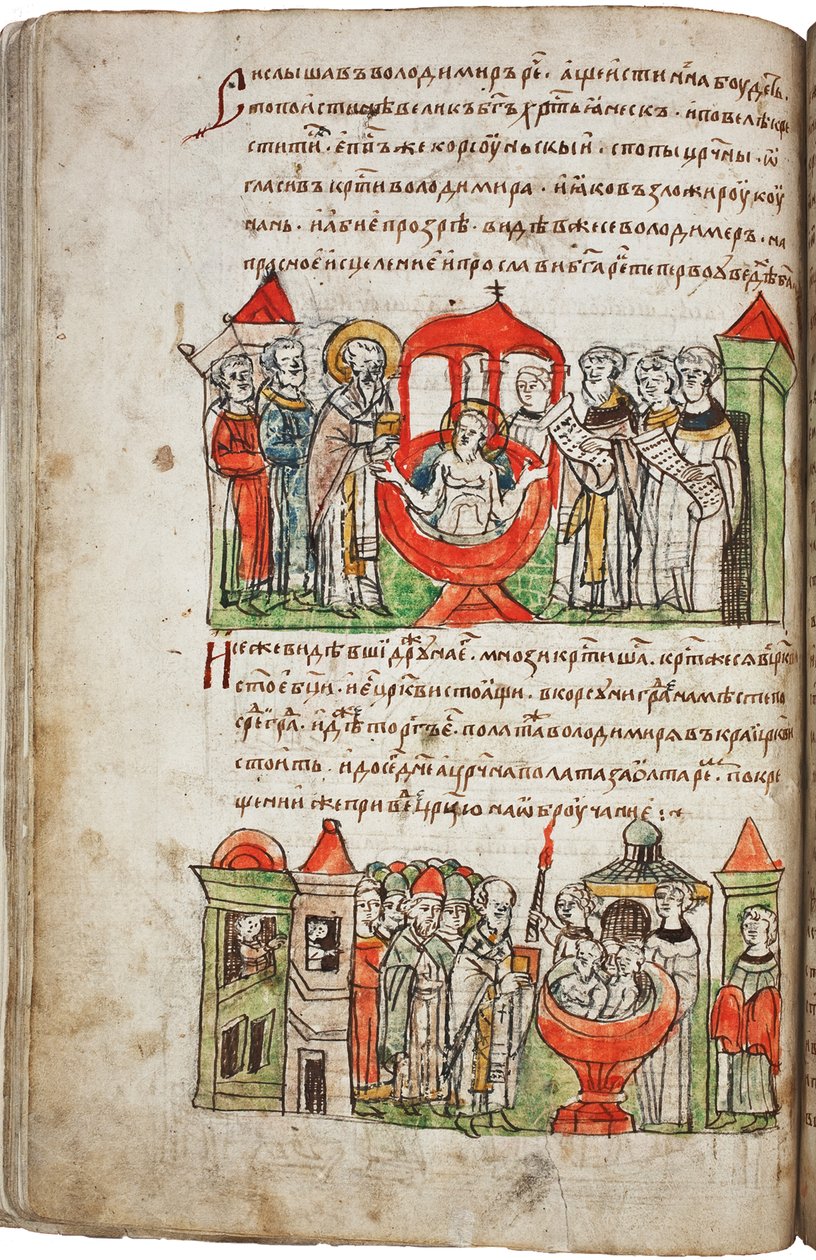 Си слышавъ володимиръ рече . аще истинна боудеть .
то поистинѣ великъ бг҃ъ хрⷭ҇тьꙗнескъ . и повелѣ кре
стити сѧ . еп҃пъ же корсоуньскыи . с попы цр҃чны . ѡ
гласивъ крⷭ҇ти володимира . и ꙗко възложи роукоу
нань . и абиѥ прозрѣ . видѣв же се володимеръ . на
прасноѥ исцелениѥ и прослави бг҃а рекъ то первоѥ оувѣдѣхъ
И се же видѣвши дроужина ѥго . мнози крⷭ҇тишасѧ . крⷭ҇т же сѧ в цр҃кви
ст҃оѥ бц҃и . и ѥсть цр҃кви стоꙗщи . в корсуни градѣ на мѣсте по
средѣ града . идѣже торгъ дѣють . полата володимирѧ въ краи цр҃кви
стоить . и до сего дн҃е а цр҃чна полата за ѡлтаремь . по кре
щении же приведе цр҃цю на ѡброучаниѥ :~